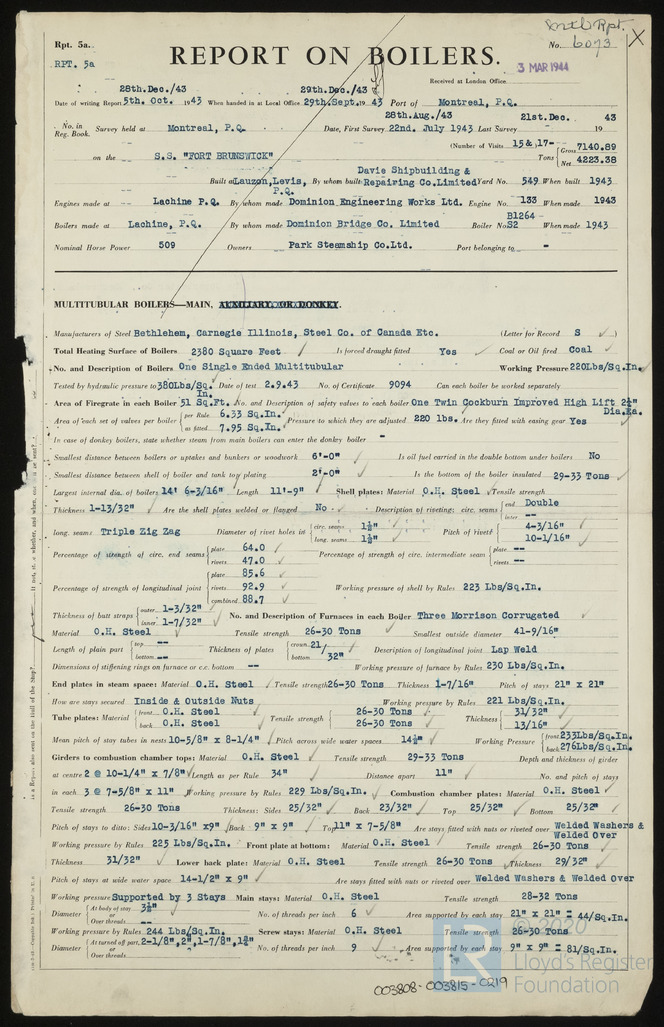 Rpt. 5a.
RPT. 5a
REPORT ON BOILERS.
No. 6073 X
Received at London Office 3 MAR 1944
28th.Dec./43 29th.Dec./43
Date of writing Report 5th. Oct. 1943 When handed in at Local Office 29th.Sept. 1943 Port of Montreal, P.Q.
28th.Aug./43 21st.Dec. 43
No. in Reg. Book. Survey held at Montreal, P.Q. Date, First Survey 22nd. July 1943 Last Survey 19
(Number of Visits 15 & 17-
on the S.S. "FORT BRUNSWICK" Tons Gross 7140.89 Net 4223.38
Built at Lauzon, Levis, P.Q. By whom built Davie Shipbuilding & Repairing Co.Limited Yard No. 549 When built 1943
Engines made at Lachine P.Q. By whom made Dominion Engineering Works Ltd. Engine No. 133 When made 1943
Boilers made at Lachine, P.Q. By whom made Dominion Bridge Co. Limited Boiler No. B1264 S2 When made 1943
Nominal Horse Power 509 Owners Park Steamship Co.Ltd. Port belonging to -
MULTITUBULAR BOILERS—MAIN, AUXILIARY, OR DONKEY.
Manufacturers of Steel Bethlehem, Carnegie Illinois, Steel Co. of Canada Etc. (Letter for Record S )
Total Heating Surface of Boilers 2380 Square Feet Is forced draught fitted Yes Coal or Oil fired Coal
No. and Description of Boilers One Single Ended Multitubular Working Pressure 220Lbs/Sq.In.
Tested by hydraulic pressure to 380Lbs/Sq.In. Date of test 2.9.43 No. of Certificate 9094 Can each boiler be worked separately
Area of Firegrate in each Boiler 51 Sq.Ft. No. and Description of safety valves to each boiler One Twin Cockburn Improved High Lift 2½" Dia.Ea.
Area of each set of valves per boiler per Rule 6.33 Sq.In. as fitted 7.95 Sq.In. Pressure to which they are adjusted 220 lbs. Are they fitted with easing gear Yes
In case of donkey boilers, state whether steam from main boilers can enter the donkey boiler -
Smallest distance between boilers or uptakes and bunkers or woodwork 6'-0" Is oil fuel carried in the double bottom under boilers No
Smallest distance between shell of boiler and tank top plating 2'-0" Is the bottom of the boiler insulated 29-33 Tons
Largest internal dia. of boilers 14' 6-3/16" Length 11'-9" Shell plates: Material O.H. Steel Tensile strength
Thickness 1-13/32" Are the shell plates welded or flanged No Description of riveting: circ. seams end Double inter --
long. seams Triple Zig Zag Diameter of rivet holes in circ. seams 1½" long. seams 1½" Pitch of rivets 4-3/16" 10-1/16"
Percentage of strength of circ. end seams plate 64.0 rivets 47.0 Percentage of strength of circ. intermediate seam plate -- rivets --
Percentage of strength of longitudinal joint plate 85.6 rivets 92.9 combined 88.7 Working pressure of shell by Rules 223 Lbs/Sq.In.
Thickness of butt straps outer 1-3/32" inner 1-7/32" No. and Description of Furnaces in each Boiler Three Morrison Corrugated
Material O.H. Steel Tensile strength 26-30 Tons Smallest outside diameter 41-9/16"
Length of plain part top -- bottom -- Thickness of plates crown 21/ bottom 32" Description of longitudinal joint Lap Weld
Dimensions of stiffening rings on furnace or c.c. bottom -- Working pressure of furnace by Rules 230 Lbs/Sq.In.
End plates in steam space: Material O.H. Steel Tensile strength 26-30 Tons Thickness 1-7/16" Pitch of stays 21" x 21"
How are stays secured Inside & Outside Nuts Working pressure by Rules 221 Lbs/Sq.In.
Tube plates: Material front O.H. Steel back O.H. Steel Tensile strength 26-30 Tons 26-30 Tons Thickness 31/32" 13/16"
Mean pitch of stay tubes in nests 10-5/8" x 8-1/4" Pitch across wide water spaces 14½" Working Pressure front 233Lbs/Sq.In. back 276Lbs/Sq.In.
Girders to combustion chamber tops: Material O.H. Steel Tensile strength 29-33 Tons Depth and thickness of girder
at centre 2 @ 10-1/4" x 7/8" Length as per Rule 34" Distance apart 11" No. and pitch of stays
in each 3 @ 7-5/8" x 11" Working pressure by Rules 229 Lbs/Sq.In. Combustion chamber plates: Material O.H. Steel
Tensile strength 26-30 Tons Thickness: Sides 25/32" Back 23/32" Top 25/32" Bottom 25/32"
Pitch of stays to ditto: Sides 10-3/16" x9" Back 9" x 9" Top 11" x 7-5/8" Are stays fitted with nuts or riveted over Welded Washers & Welded Over
Working pressure by Rules 225 Lbs/Sq.In. Front plate at bottom: Material O.H. Steel Tensile strength 26-30 Tons
Thickness 31/32" Lower back plate: Material O.H. Steel Tensile strength 26-30 Tons Thickness 29/32"
Pitch of stays at wide water space 14-1/2" x 9" Are stays fitted with nuts or riveted over Welded Washers & Welded Over
Working pressure Supported by 3 Stays Main stays: Material O.H. Steel Tensile strength 28-32 Tons
Diameter At body of stay 3½" or Over threads -- No. of threads per inch 6 Area supported by each stay 21" x 21" = 44/Sq.In.
Working pressure by Rules 244 Lbs/Sq.In. Screw stays: Material O.H. Steel Tensile strength 26-30 Tons
Diameter At turned off part, 2-1/8",2",1-7/8",1¾" or Over threads No. of threads per inch 9 Area supported by each stay 9" x 9" = 81/Sq.In.
© 2020
LR Lloyd's Register Foundation
003808-003815-0219